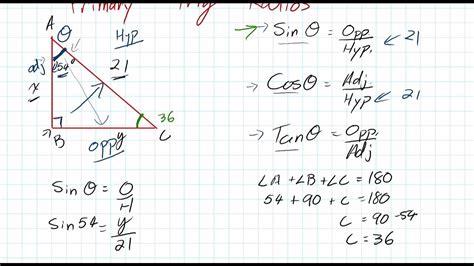 Primary Trig Ratios
A
θ
Hyp
21
adj
x
54°
B
opp
y
36
C
Sin θ = O/H
Sin 54 = y/21
→ Sin θ = Opp/Hyp 21
Cos θ = Adj/Hyp 21
→ Tan θ = Opp/Adj
∠A + ∠B + ∠C = 180
54 + 90 + C = 180
C = 90 - 54
C = 36